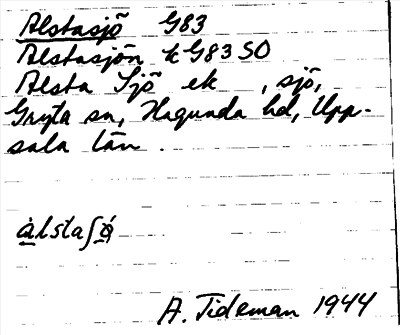 Alstasjö G83
Alstasjön k G83 SO
Alsta Sjö ek , sjö,
Gryta sn, Hagunda hd, Upp-
sala län.
àlstaʃǿ
A. Tideman 1944